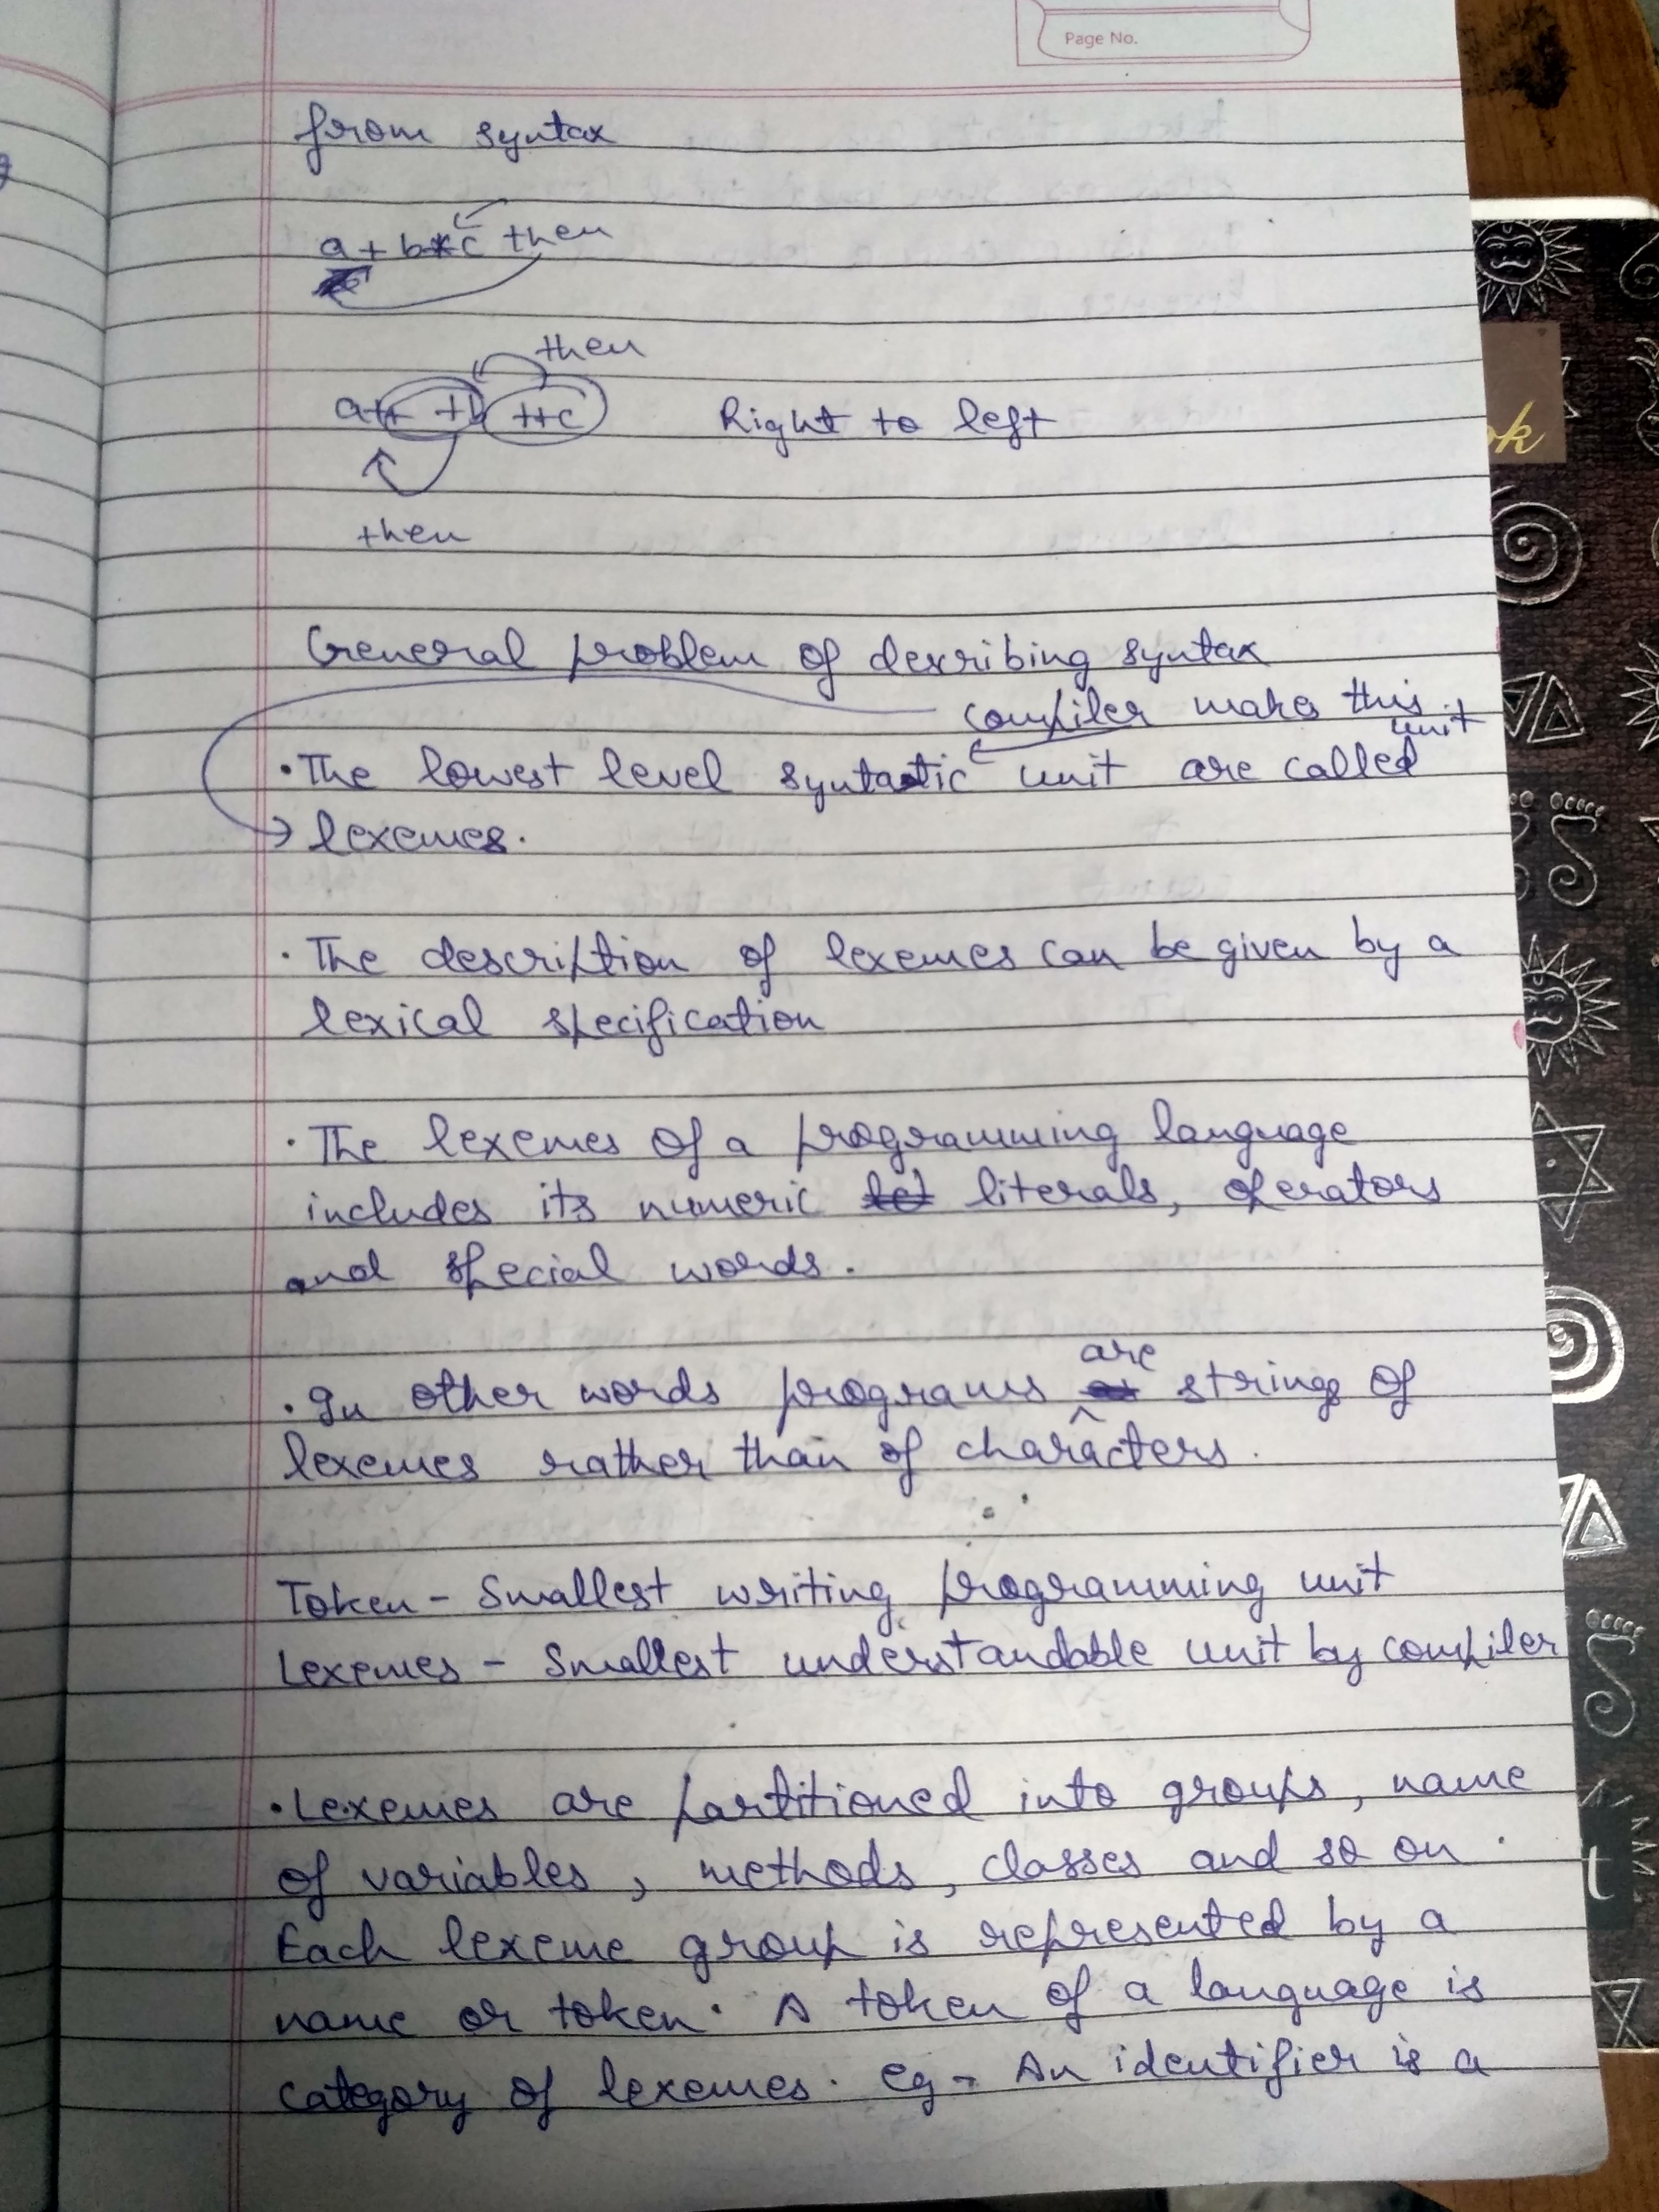 Page No.
from syntax
a + b*c then
then
a++ +b ++c Right to left
then
General problem of describing syntax
compiler makes this unit
• The lowest level syntactic unit are called
lexemes.
• The description of lexemes can be given by a
lexical specification
• The lexemes of a programming language
includes its numeric literals, operators
and special words.
• In other words programs are strings of
lexemes rather than of characters.
Token - Smallest writing programming unit
Lexemes - Smallest understandable unit by compiler
• Lexemes are partitioned into groups, name
of variables, methods, classes and so on.
Each lexeme group is represented by a
name or token. A token of a language is
category of lexemes. eg - An identifier is a
ok
t